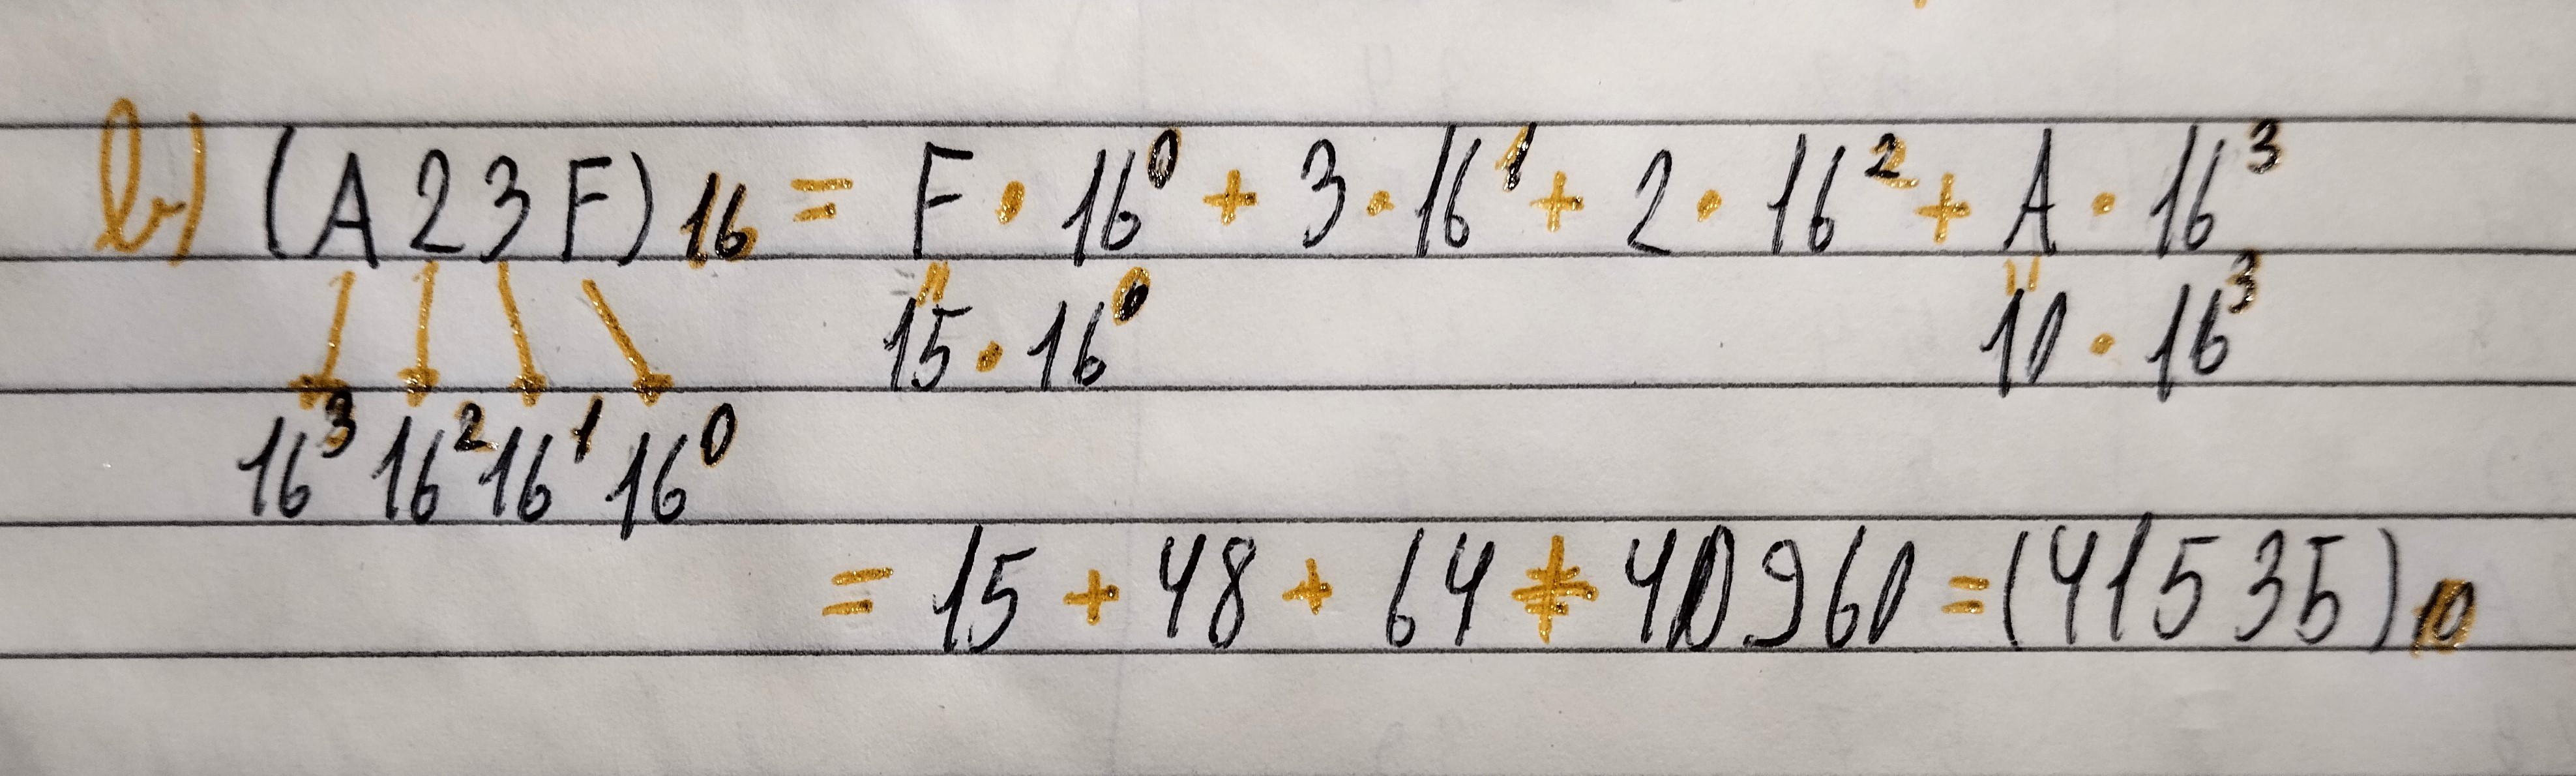 b) (A23F)₁₆ = F · 16⁰ + 3 · 16¹ + 2 · 16² + A · 16³
" "
15 · 16⁰ 10 · 16³
16³ 16² 16¹ 16⁰
= 15 + 48 + 64 + 40960 = (41535)₁₀